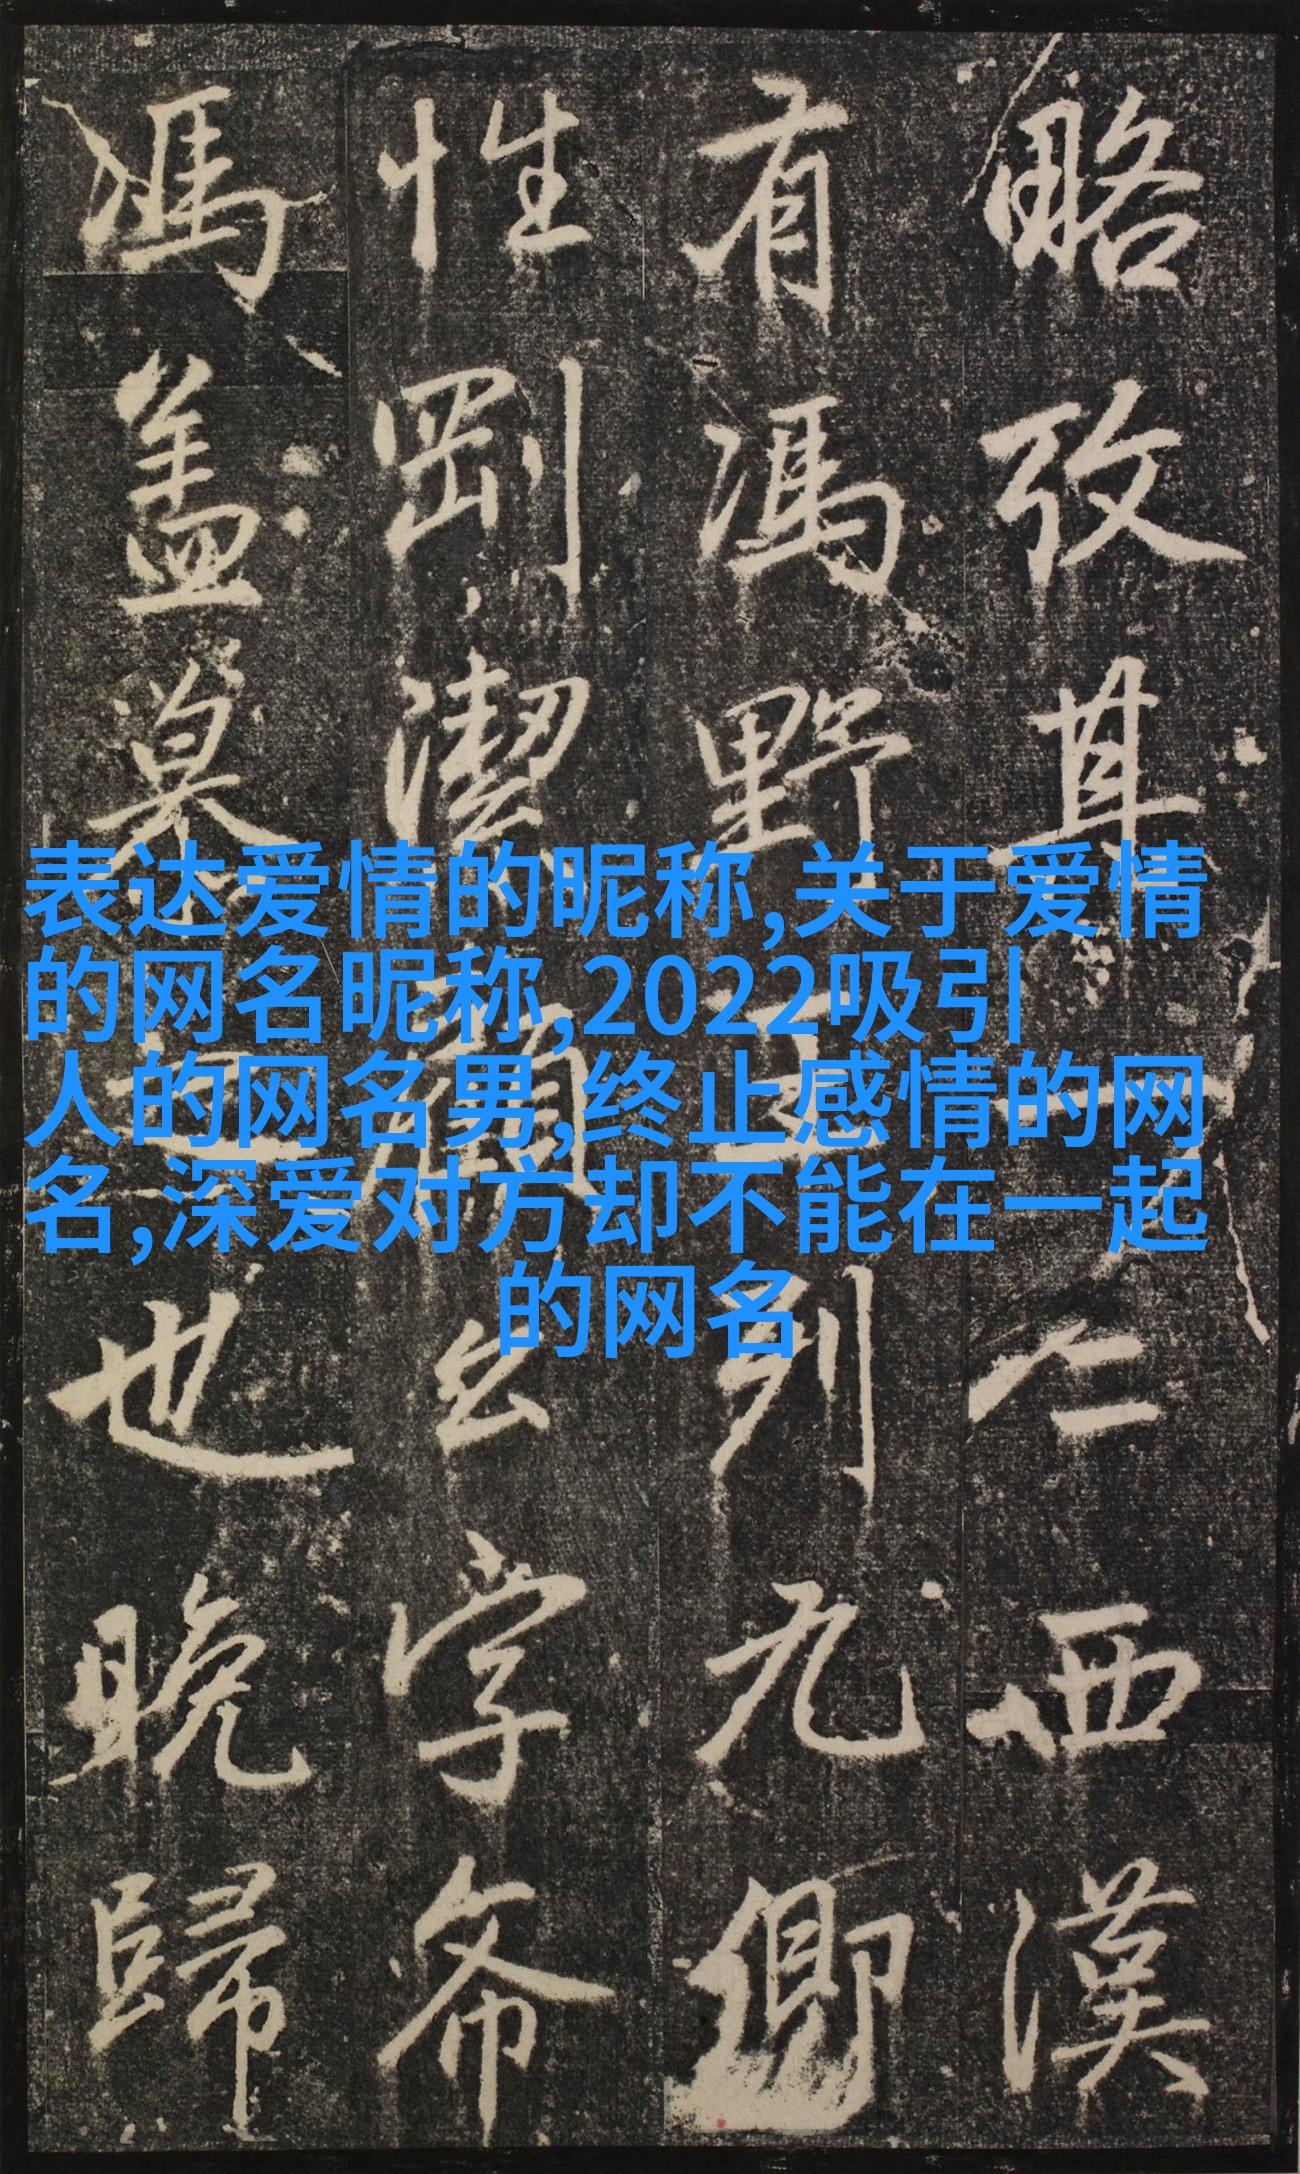 略攷其一二西漢
有馮野王列九卿
性剛潔
幺字䘚
馮蓋
也晚歸
表达爱情的昵称,关于爱情
的网名昵称,2022吸引
人的网名男,终止感情的网
名,深爱对方却不能在一起
的网名